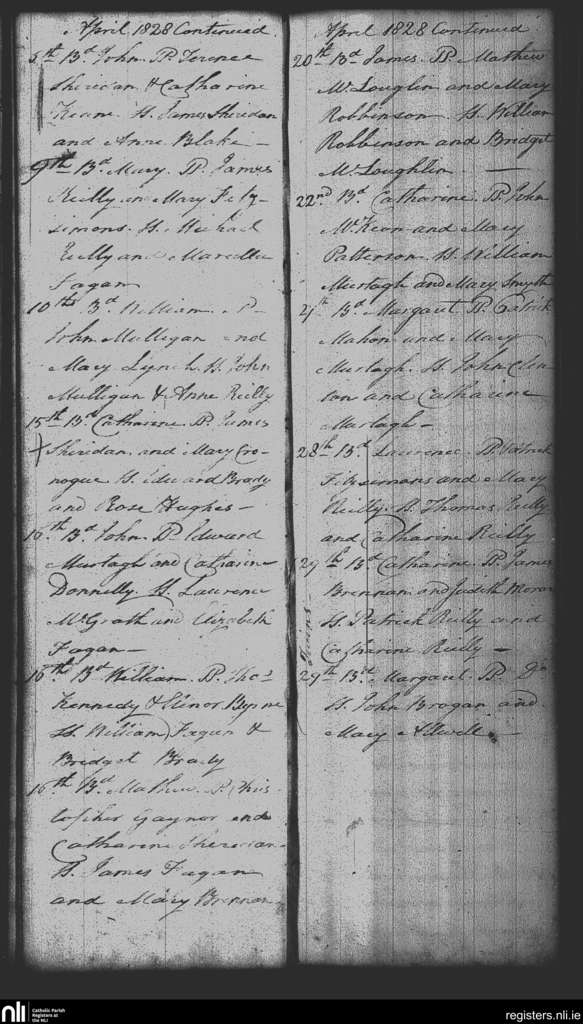 April 1828 Continued
5th Bd John. P. Terence
Sheridan & Catharine
Keane. S. James Sheridan
and Anne Blake —
9th Bd Mary. P. James
Reilly and Mary Fitz-
simons. S. Michael
Reilly and Marcella
Fagan
10th Bd William. P.
John Mulligan and
Mary Lynch. S. John
Mulligan & Anne Reilly
15th Bd Catharine. P. James
Sheridan and Mary Cro-
nogue S. Edward Brady
and Rose Hughes —
16th Bd John. P. Edward
Murtagh and Catharine
Donnelly. S. Laurence
McGrath and Elizabeth
Fagan —
16th Bd William. P. Thos
Kennedy & Elinor Byrne
S. William Fagan &
Bridget Brady
16th Bd Mathew. P. Chris-
topher Gaynor and
Catharine Sheridan
S. James Fagan
and Mary Brennan
April 1828 Continued
20th Bd James. P. Mathew
McLouglin and Mary
Robbinson. S. William
Robbinson and Bridget
McLoughlin. —
22nd Bd Catharine. P. John
McKeon and Mary
Patterson. S. William
Murtagh and Mary Smyth
Bd Margaret. P. Patrick
Mahon and Mary
Murtagh. S. John Clin-
ton and Catharine
Murtagh —
28th Bd Laurence. P. Patrick
Fitzsimons and Mary
Reilly. S. Thomas Reilly
and Catharine Reilly
29th Bd Catharine. P. James
Brennan and Judith Moran
S. Patrick Reilly and
Catharine Reilly —
Twins —
29th Bd Margaret. P. Do
S. John Brogan and
Mary
nli Catholic Parish
Registers at
the NLI
registers.nli.ie